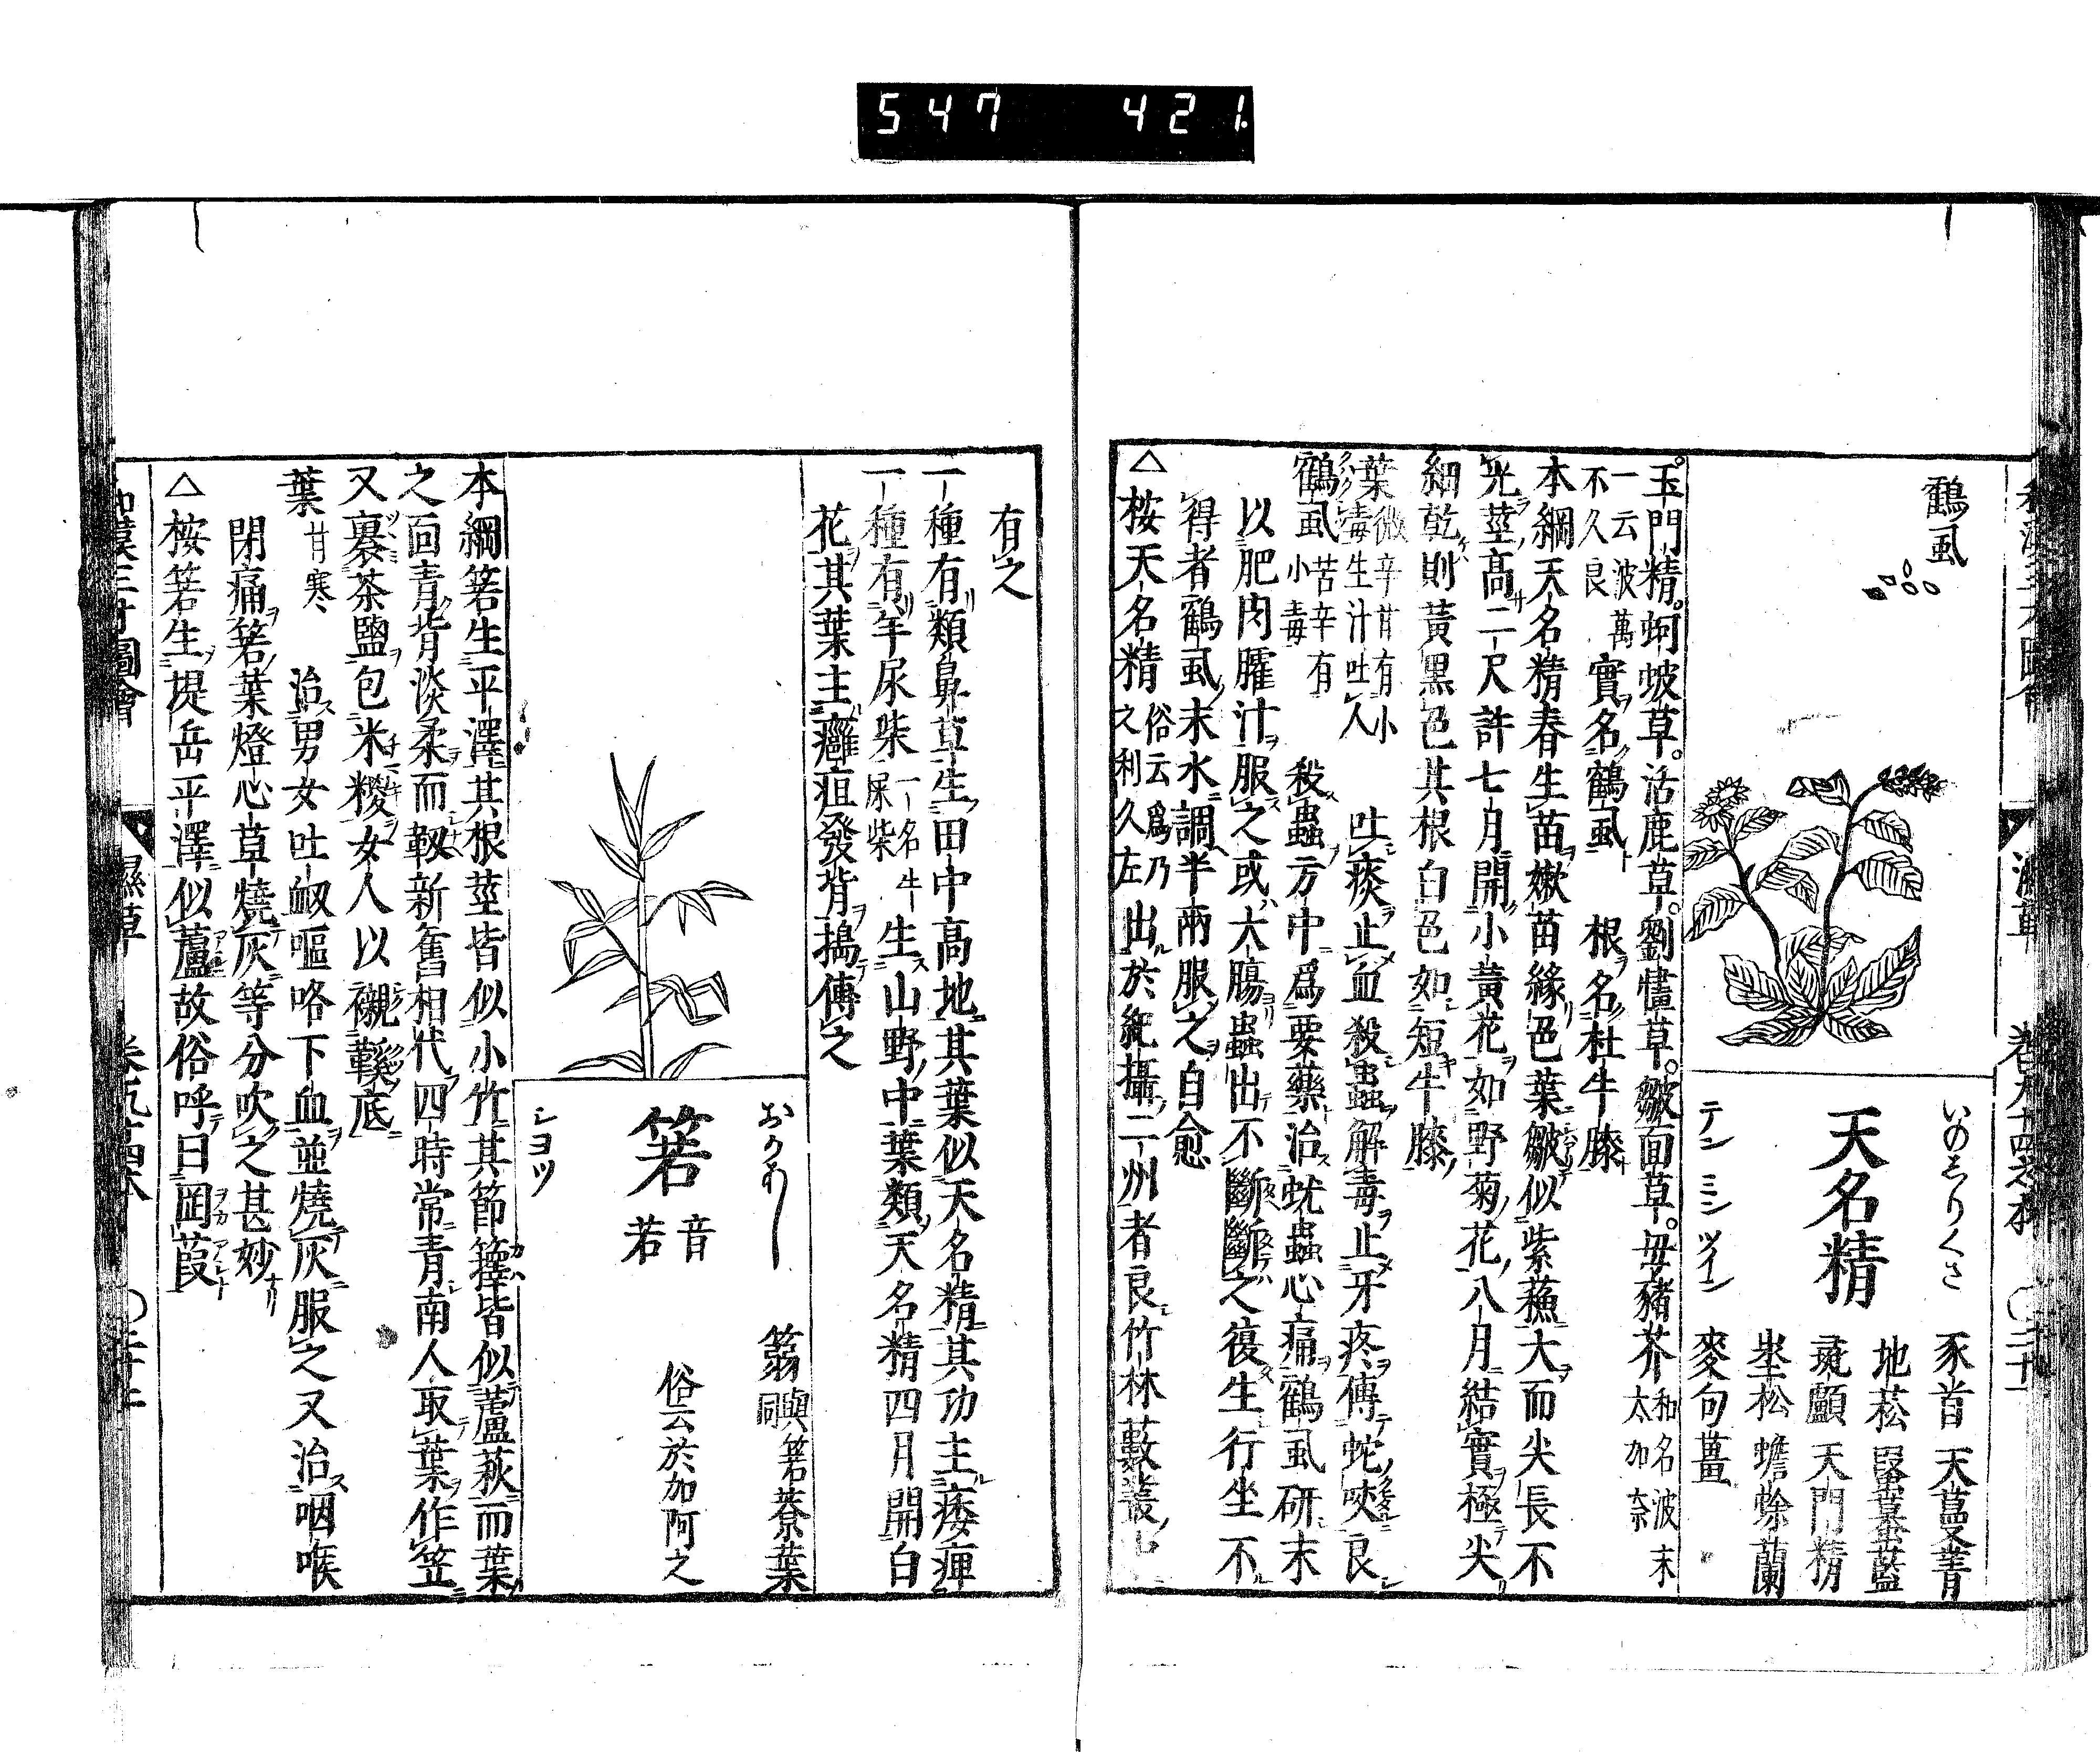 547 421
鶴虱
いのしりくさ
天名精
テンミンツイン
豕首 天蔓菁
地菘 蟇藍
彘顱 天門精
埊松 蟾蜍蘭
麥句薑
玉門精。蚵蚾草。活鹿草。劉㦎草。皺面草。母豬芥 和名波末太加奈
一云波萬不久良 實名鶴虱 根名杜牛膝
本綱天名精春生苗嫩苗綠色葉皺似紫蘇大而尖長不
光莖高二尺許七月開小黃花如野菊花八月結實極尖
細乾則黃黑色其根白色如短牛膝
葉 微辛甘有小毒生汁吐人 吐痰止血殺蟲解毒止牙疼傅蛇咬良
鶴虱 苦辛有小毒 殺蟲方中爲要藥治蚘蟲心痛鶴虱研末
以肥肉臛汁服之或大腸蟲出不斷斷之復生行坐不
得者鶴虱末水調半兩服之自愈
△桉天名精 俗云爲乃之利久左 出於紀攝二州者良竹林藪叢
有之
一種有類鼻草生田中高地其葉似天名精其功主痿痺
一種有牛尿柴 一名牛屎柴 生山野中葉類天名精四月開白
花其葉主癰疽發背搗傅之
箬
音若
シヨツ
篛 與箬同 䕠葉
俗云於加阿之
本綱箬生平澤其根莖皆似小竹其節籜皆似蘆荻而葉
之面青背淡柔而靱新舊相代四時常青南人取葉作笠
又裹茶鹽包米糉女人以襯鞵底
葉 甘寒 治男女吐衂嘔咯下血並燒灰服之又治咽喉
閉痛箬葉燈心草燒灰等分吹之甚妙
△桉箬生堤岳平澤似蘆故俗呼曰岡葭